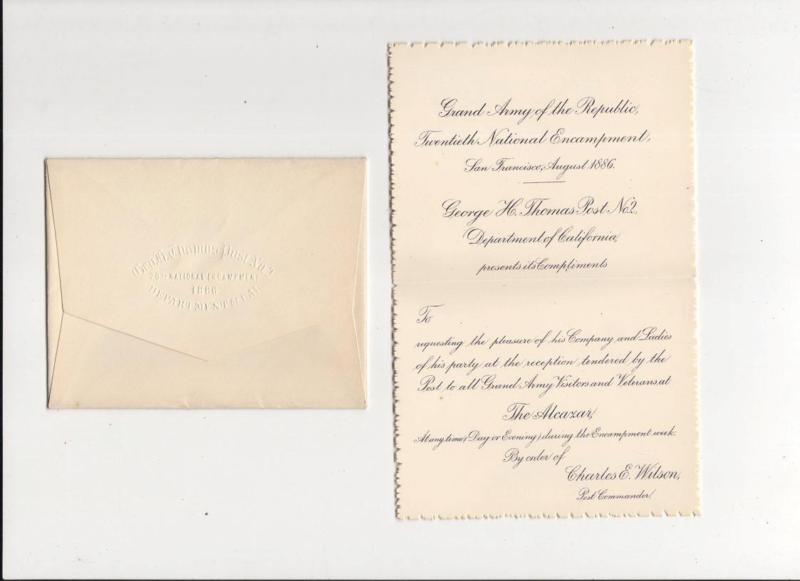 Geo. H. Thomas Post No. 2
20TH NATIONAL ENCAMPMENT
1886
DEPARTMENT OF CAL.
Grand Army of the Republic,
Twentieth National Encampment,
San Francisco, August 1886.
George H. Thomas Post No. 2,
Department of California,
presents its Compliments
To
requesting the pleasure of his Company and Ladies
of his party at the reception tendered by the
Post to all Grand Army Visitors and Veterans, at
The Alcazar,
At any time, (Day or Evening) during the Encampment week.
By order of
Charles E. Wilson,
Post Commander.